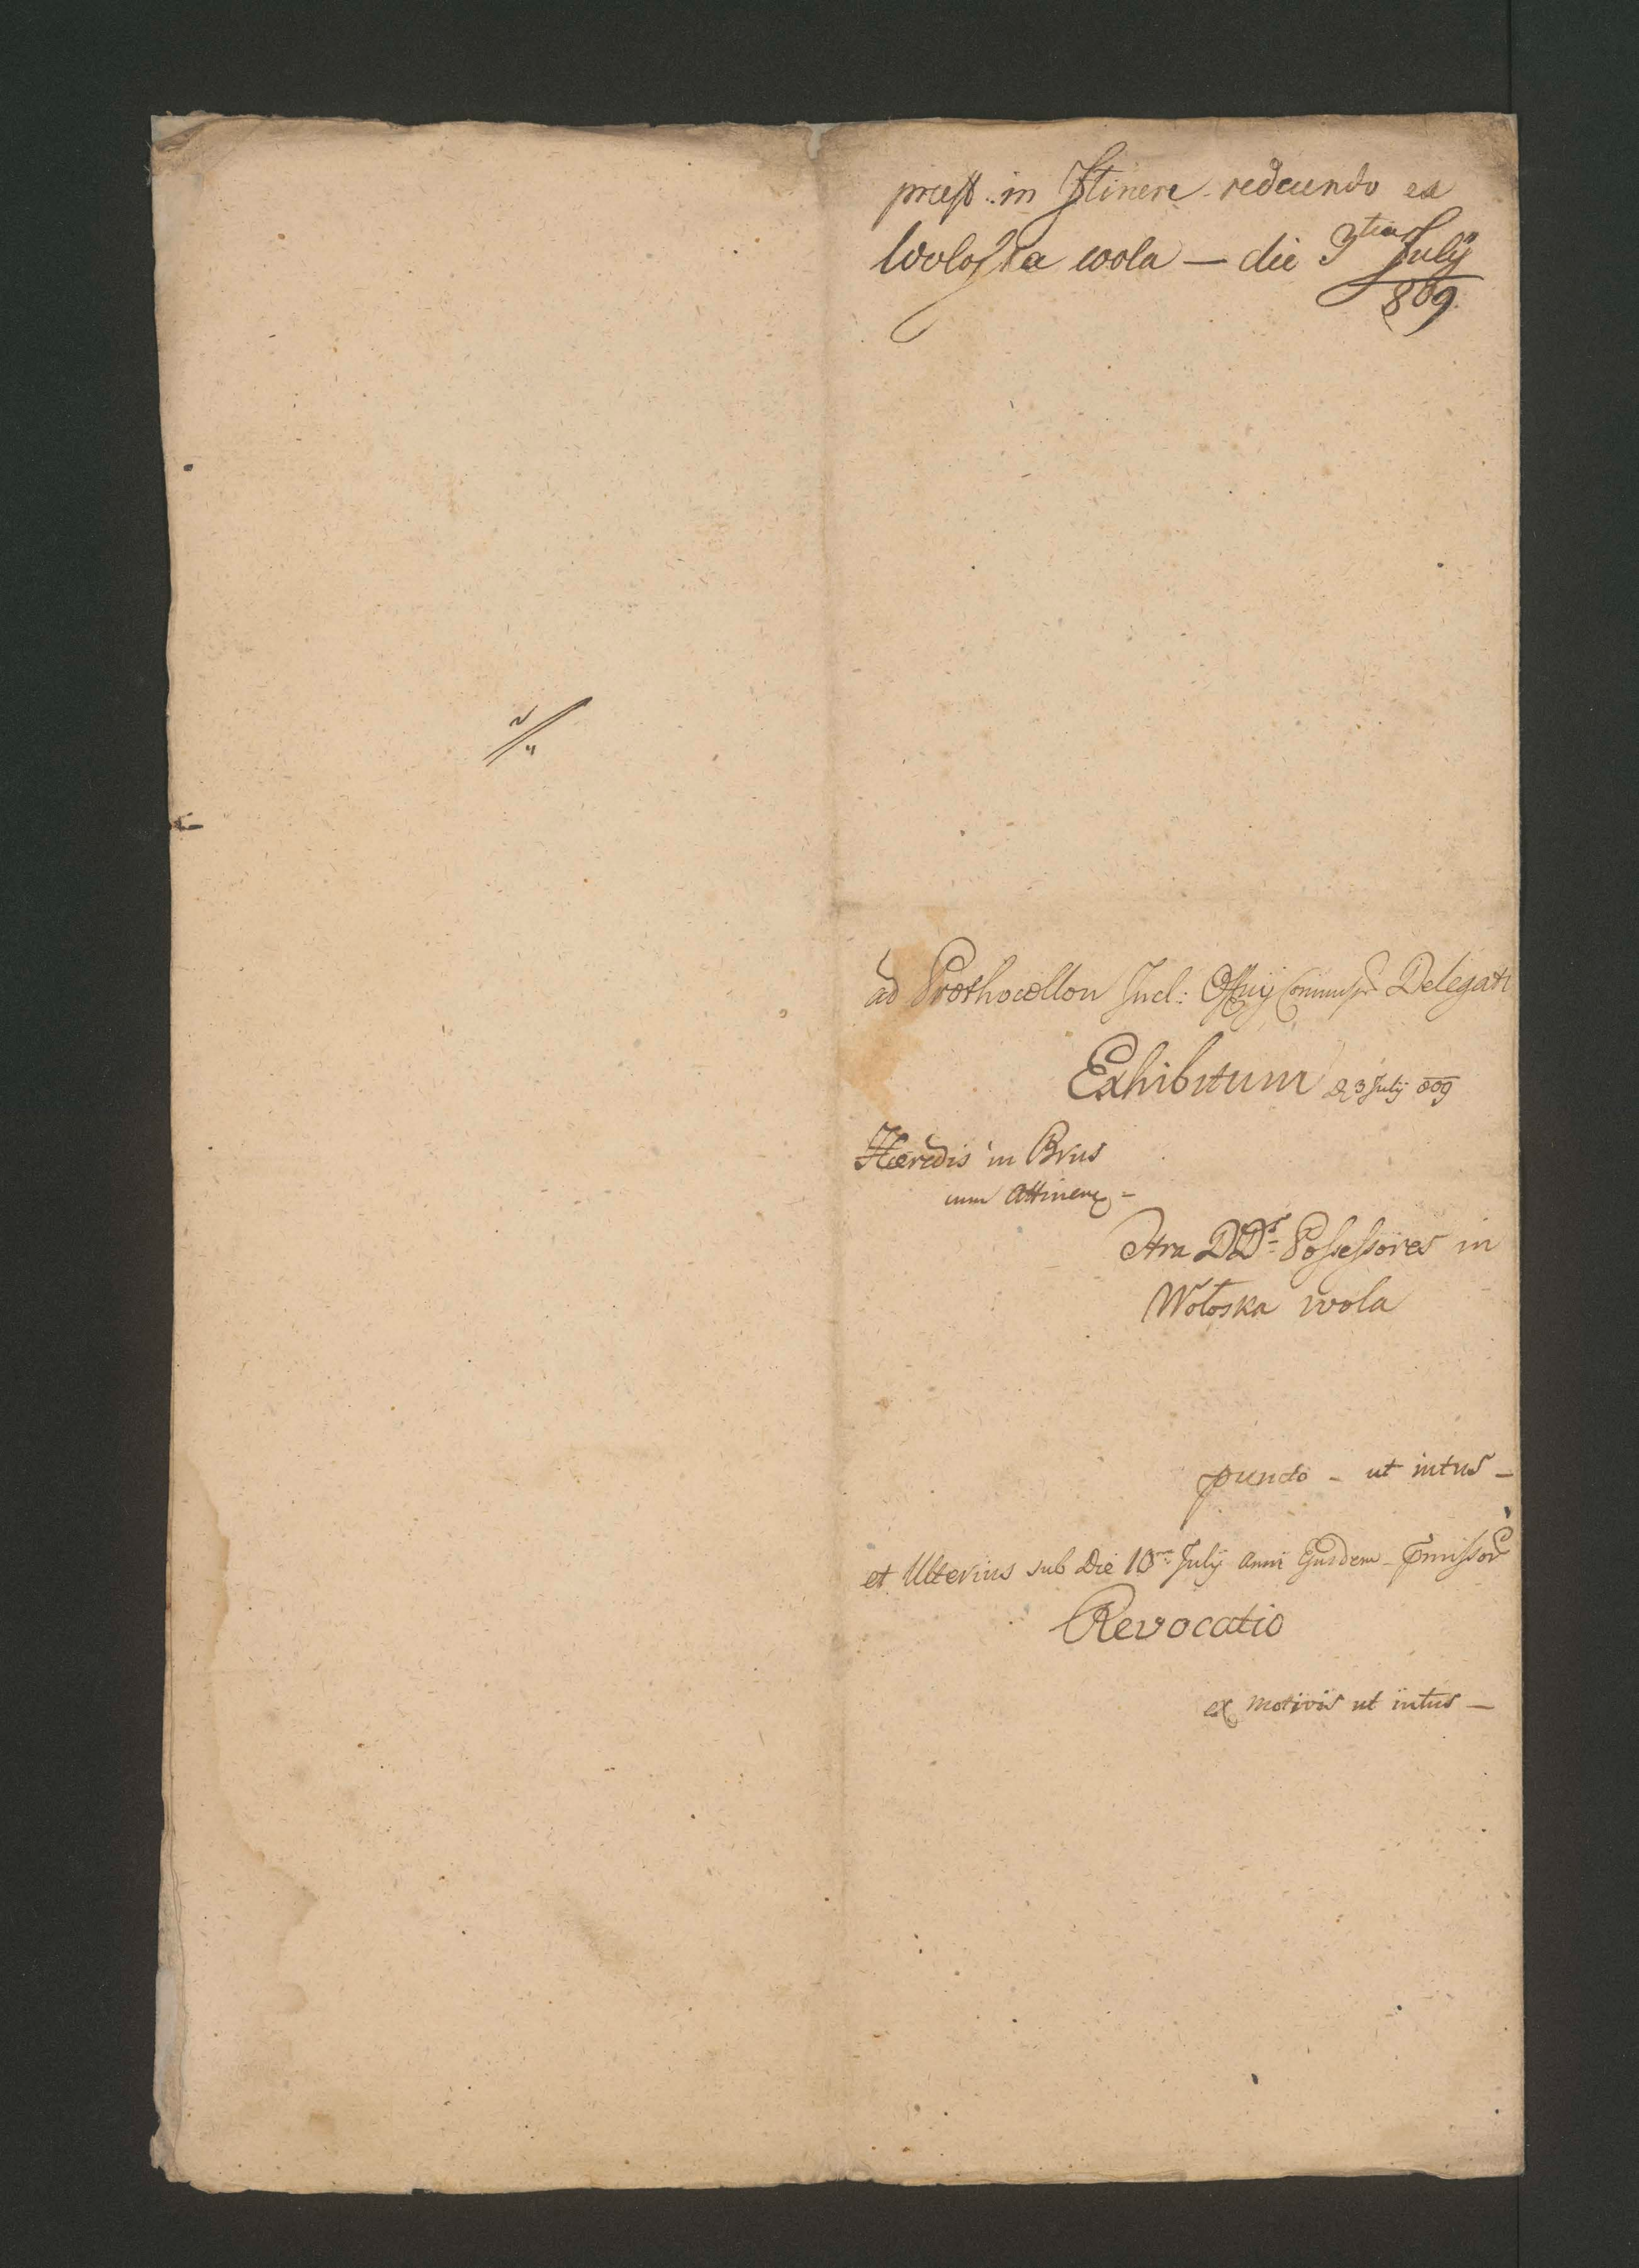 præst. in Itinere redeundo ex
Woloska wola — die 3tia July
809.
ad Prothocollon Incl: Offiij Commiss. Delegati
Exhibitum d. 3 July 809
Hæredis in Brus
cum Attinen. –
Ctra DDs. Possessores in
Wołoska wola
puncto – ut intus –
et Ulterius sub Die 10ma July Anni Ejusdem –
Revocatio
ex motivis ut intus –